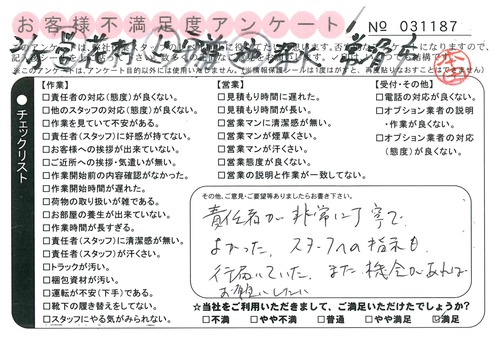 お客様不満足度アンケート
№ 031187
チェックリスト
【作業】
□責任者の対応(態度)が良くない。
□他のスタッフの対応(態度)が良くない。
□作業を見ていて不安がある。
□責任者(スタッフ)に好感が持てない。
□お客様への挨拶が出来ていない。
□ご近所への挨拶・気遣いが無い。
□作業開始前の内容確認がなかった。
□作業開始時間が遅れた。
□荷物の取り扱いが雑である。
□お部屋の養生が出来ていない。
□作業時間が長すぎる。
□責任者(スタッフ)に清潔感が無い。
□責任者(スタッフ)が汗くさい。
□トラックが汚い。
□梱包資材が汚い。
□運転が不安(下手)である。
□靴下の履き替えをしてない。
□スタッフにやる気がみられない。
【営業】
□見積もり時間に遅れた。
□見積もり時間が長い。
□営業マンに清潔感が無い。
□営業マンが煙草くさい。
□営業マンが汗くさい。
□営業態度が良くない。
□営業の説明と作業が一致してない。
【受付・その他】
□電話の対応が良くない。
□オプション業者の説明・作業が良くない。
□オプション業者の対応(態度)が良くない。
その他、ご意見・ご要望等ありましたらお書き下さい。
責任者が非常に丁寧で
よかった。スタッフへの指示も
行届いていた。また機会があれば
お願いしたい
☆当社をご利用いただきまして、ご満足いただけたでしょうか?
□不満 □やや不満 □普通 □やや満足 ☑満足